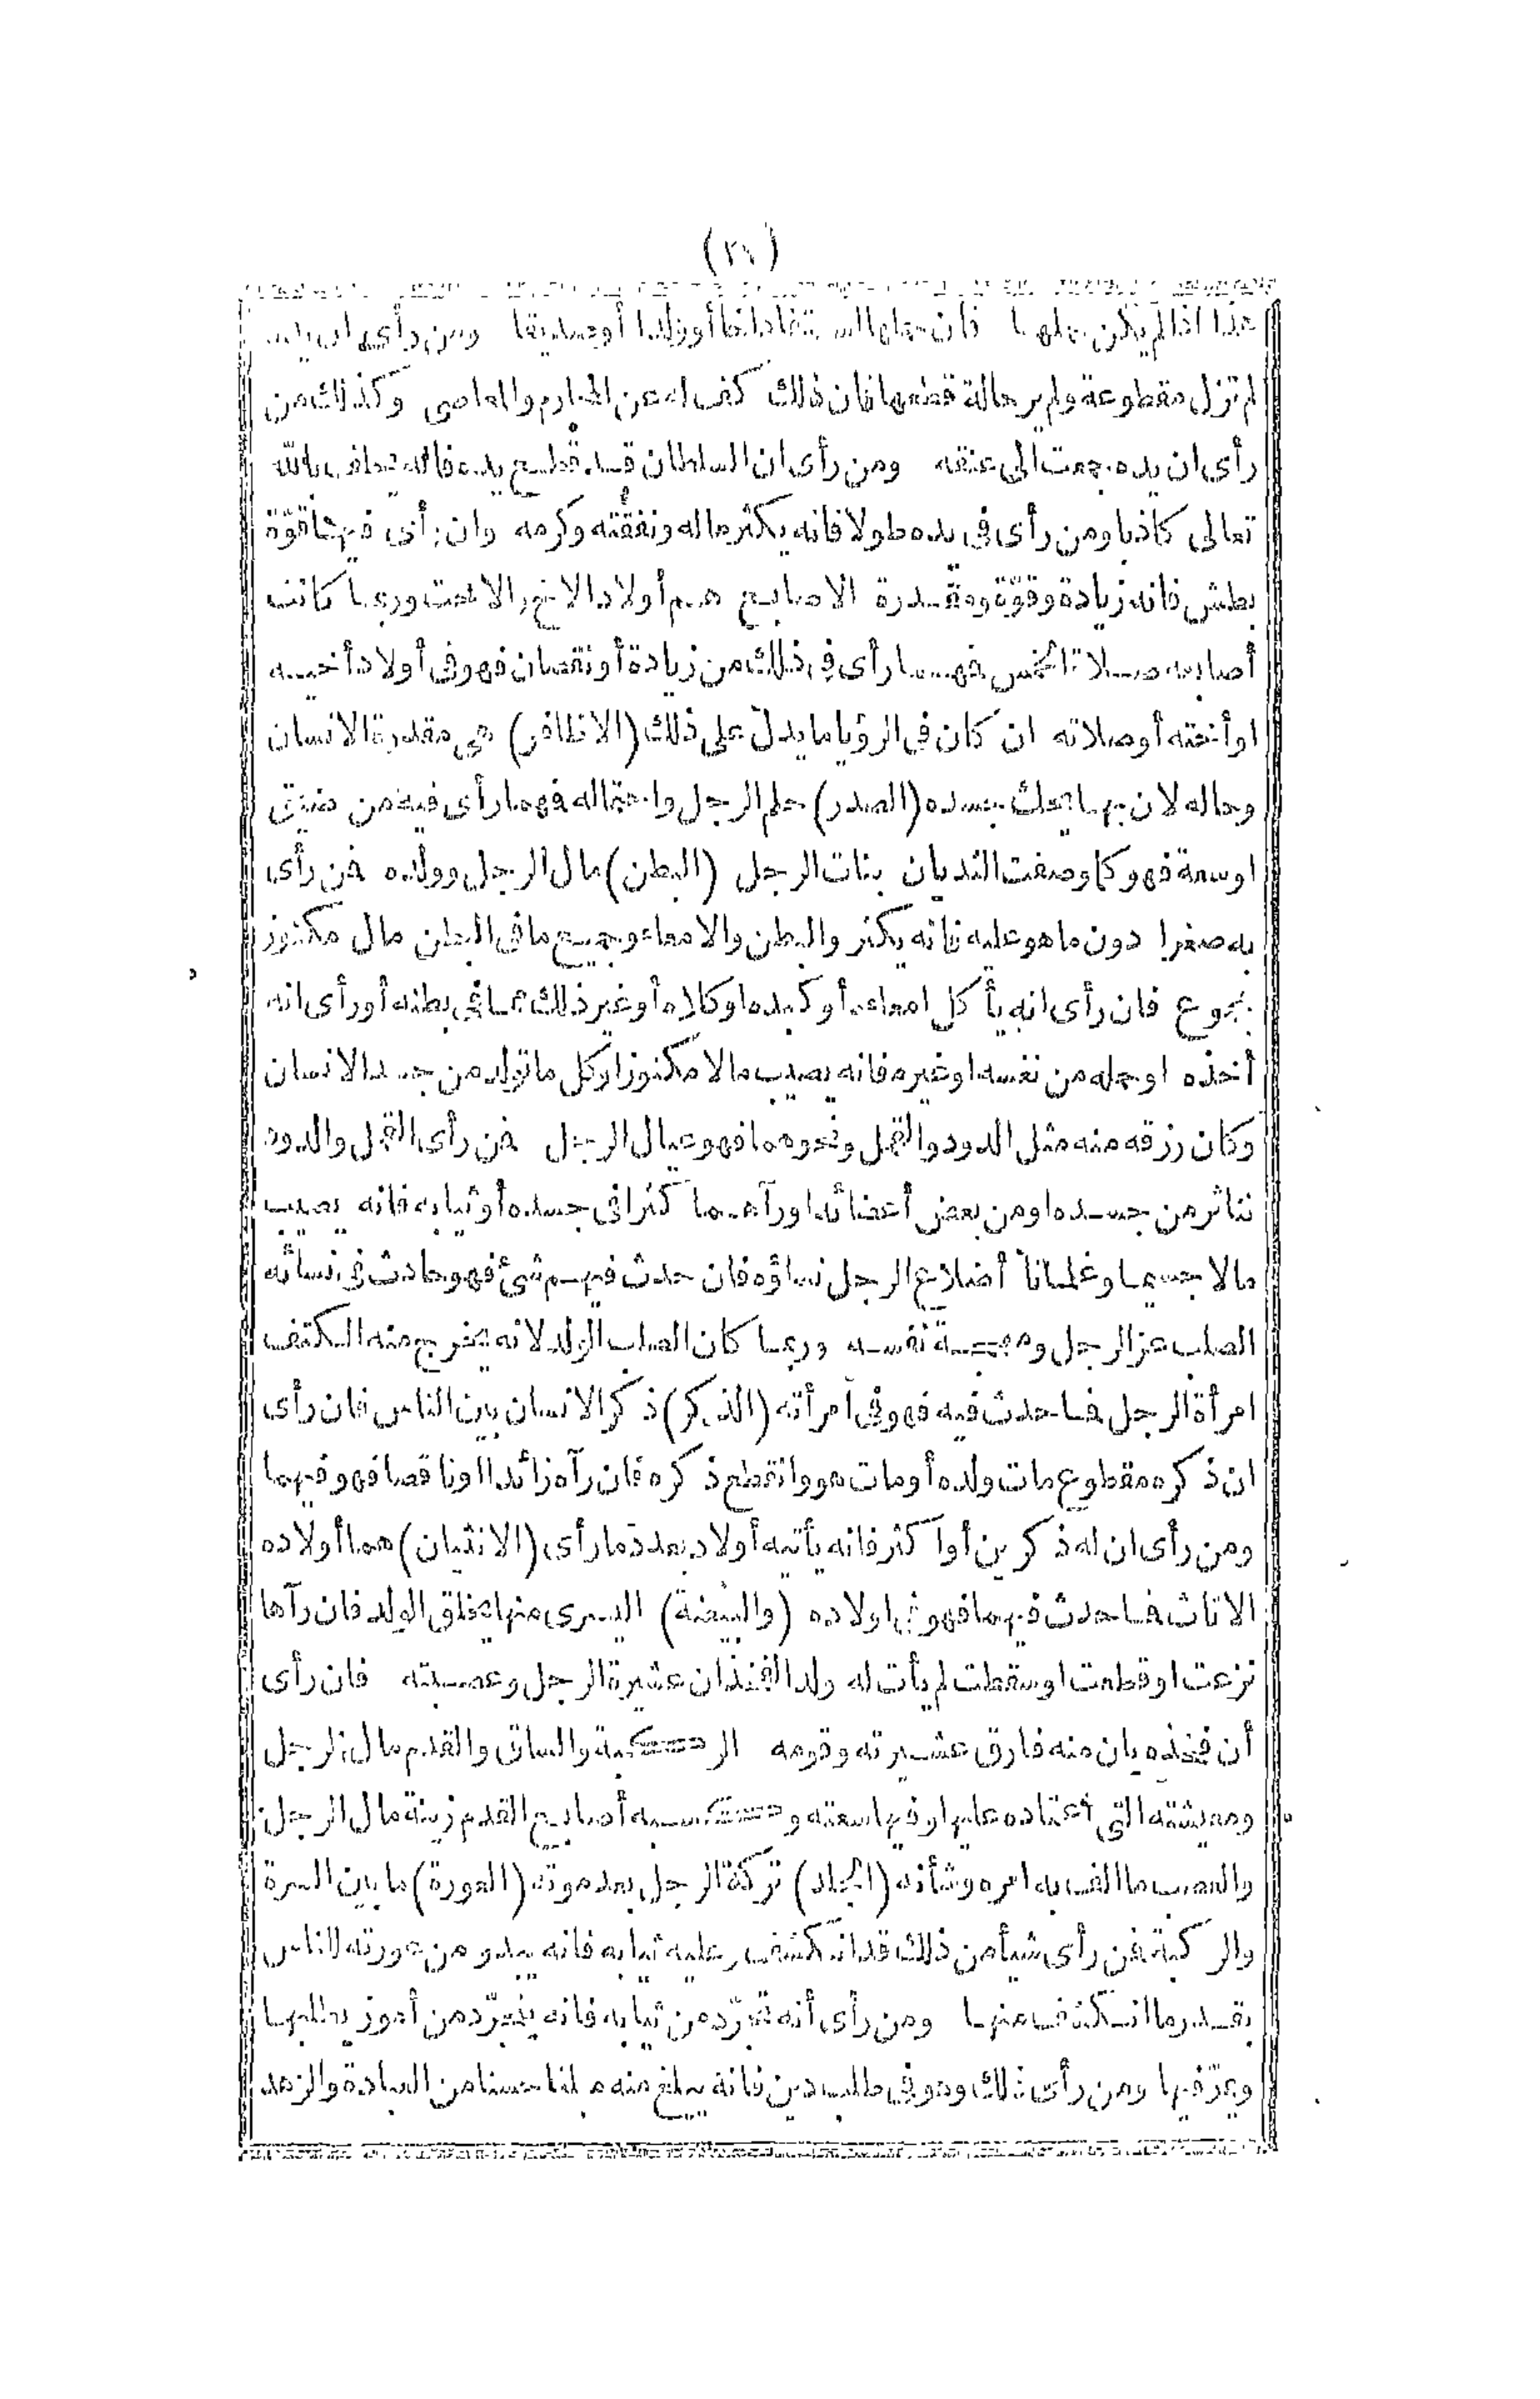 (٢١)
هذا اذا لم يكن حملها فان حملها استفاد اخا أو ولدا أو صديقا ومن رأى ان يده
لم تزل مقطوعة ولم ير حالة قطعها فان ذلك كف له عن المحارم والمعاصى وكذلك من
رأى ان يده جمعت الى عنقه ومن رأى ان السلطان قد قطع يده فانه يحلف بالله
تعالى كاذبا ومن رأى فى يده طولا فانه يكثر ماله ونفقته وكرمه وان رأى فيها قوّة
بطش فانه زيادة وقوّة ومقدرة الاصابع هم أولاد الاخ والاخت وربما كانت
أصابعه صلاته الخمس فمهما رأى فى ذلك من زيادة أو نقصان فهو فى أولاد أخيه
او أخته أو صلاته ان كان فى الرؤيا ما يدل على ذلك (الاظافر) هى مقدرة الانسان
وحاله لان بها يحك جسده (الصدر) حلم الرجل واحتماله فمهما رأى فيه من ضيق
او سعة فهو كما وصفت الثديان بنات الرجل (البطن) مال الرجل وولده فمن رأى
به صغرا دون ما هو عليه فانه يكثر والبطن والامعاء وجميع ما فى البطن مال مكنوز
مجموع فان رأى انه يأكل امعاءه أو كبده او كلاه أو غير ذلك مما فى بطنه أو رأى انه
أخذه او حمله من نفسه او غيره فانه يصيب مالا مكنوزا وكل ما تولد من جسد الانسان
وكان رزقه منه مثل الدود والقمل ونحوهما فهو عيال الرجل فمن رأى القمل والدود
تناثر من جسده او من بعض أعضائه او رآهما كثرا فى جسده أو ثيابه فانه يصيب
مالا جسيما وغلمانا أضلاع الرجل نساؤه فان حدث فيهم شئ فهو حادث فى نسائه
الصلب عز الرجل ومهجة نفسه وربما كان الصلب الولد لانه يخرج منه الكتف
امرأة الرجل فما حدث فيه فهو فى امرأته (الذكر) ذكر الانسان بين الناس فان رأى
ان ذكره مقطوع مات ولده أو مات هو وانقطع ذكره فان رآه زائدا او ناقصا فهو فيهما
ومن رأى ان له ذكرين أو اكثر فانه يأتيه أولاد بعدد ما رأى (الانثيان) هما أولاده
الاناث فما حدث فيهما فهو فى اولاده (والبيضة) اليسرى منها يخلق الولد فان رآها
نزعت او قطعت او سقطت لم يأت له ولد الفخذان عشيرة الرجل وعصبته فان رأى
أن فخذه بان منه فارق عشيرته وقومه الركبة والساق والقدم مال الرجل
ومعيشته التى اعتاده عليها وفيها سعته وكسبه أصابع القدم زينة مال الرجل
والعصب ما الف به امره وشأنه (الجلد) تركة الرجل بعد موته (العورة) ما بين السرة
والركبة فمن رأى شيأ من ذلك قد انكشف عليه ثيابه فانه يبدو من عورته للناس
بقدر ما انكشف منها ومن رأى أنه تجرّد من ثيابه فانه يتجرّد من أمور يطلبها
ويمرّ فيها ومن رأى ذلك وهو فى طلب دين فانه يبلغ منه مبلغا حسنا من العبادة والزهد